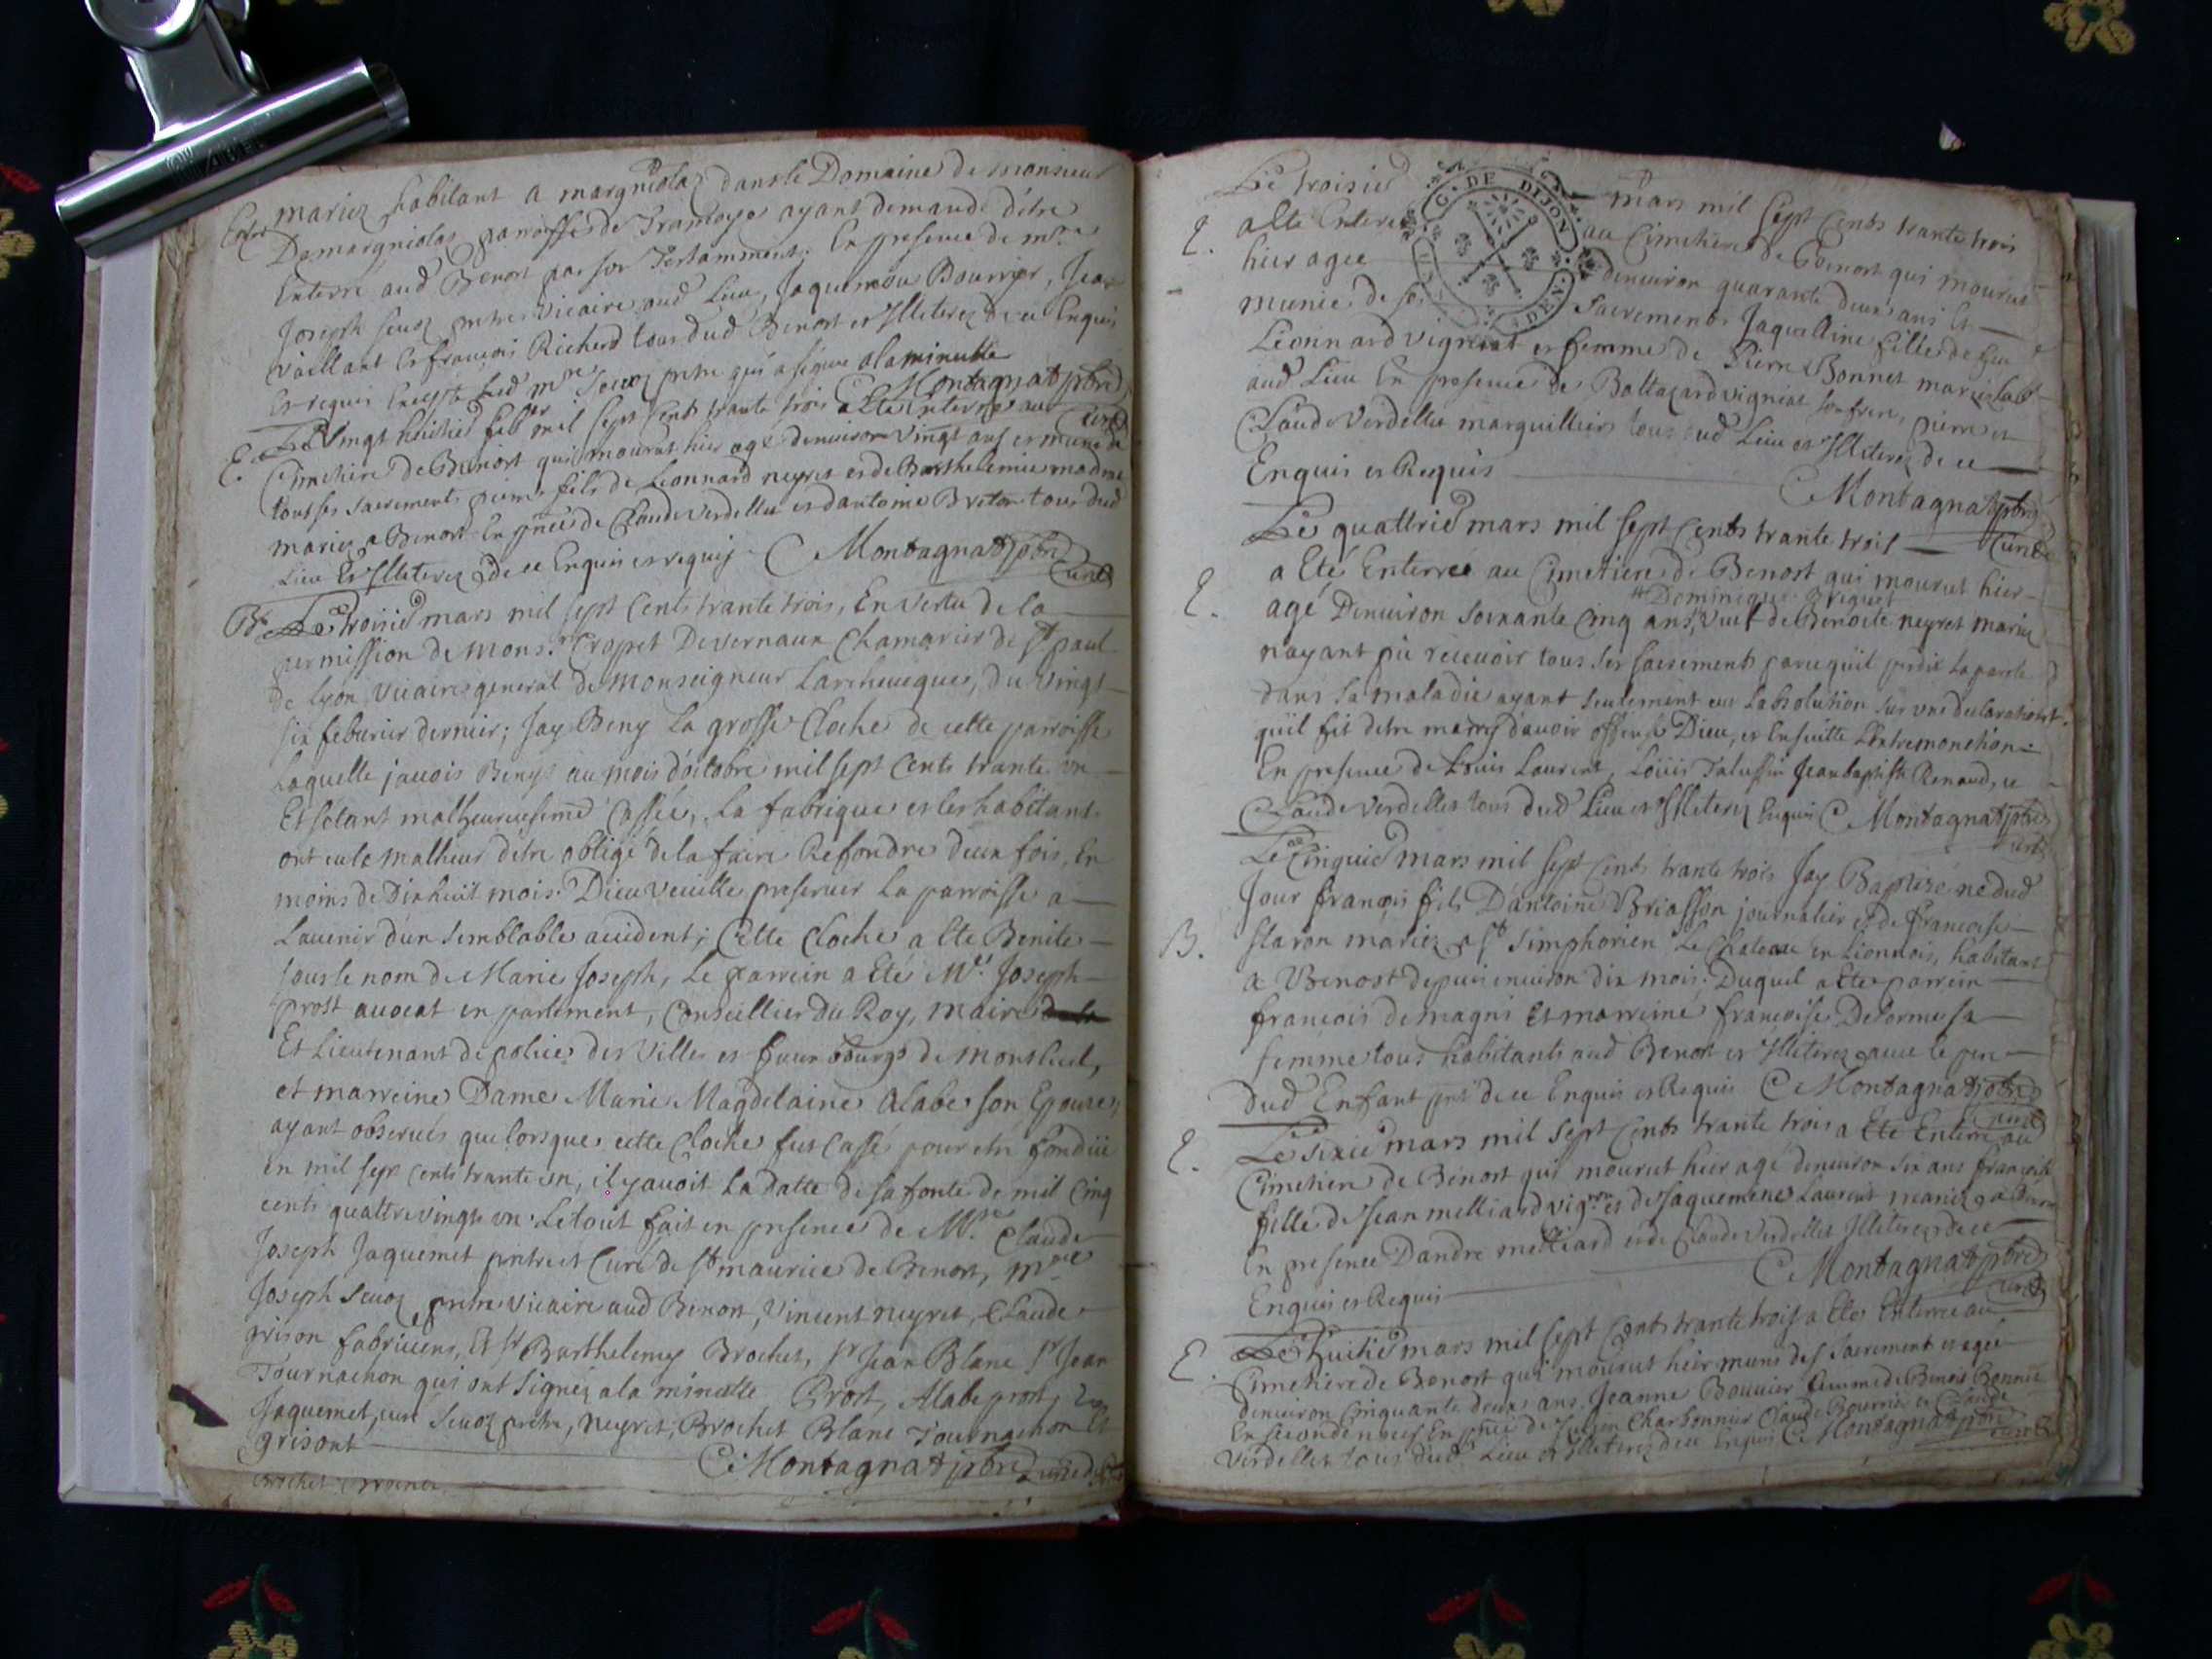 mariez habitant a margniolaz dans le Domaine de monsieur
Demargniolas parroisse de Tramoye ayant demandé dêtre
Enterré aud Benost par son Testamment. En presence de mre
Joseph seuoz prtre vicaire aud Lieu, Jaquemou Bourrier, Jean
vaillant et françois Richerd tous dud Benost et Illeterez de ce Enquis
et requis Excepté led mre Seuoz prtre qui a signé a la minutte
Montagnat ptre curé
E. Le Vingt huitie feber mil sept cents trante trois a Ete Enterré au
Cimetiere de Benost qui mourut hier agé denuiron vingt ans et muni de
tous ses sacrements pierre fils de Leonnard neyret et de Barthelemie
mariez a Benost En pnce de Claude Verdellet et dantoine Breton tous dud
Lieu et Illeterez de ce Enquis et requis C Montagnat ptre
curé
Be Le troisie mars mil sept cents trante trois, En vertu de la
permission de Monsr Cropet Devernaux Chamarier de st paul
de Lyon Vicaire general de Monseigneur Larcheueque, du vingt
six feburier dernier; Jay Beny la grosse Cloche de cette parroisse
Laquelle jauois Benys au mois doctobre mil sept cents trante un
Et setant malheureusemt cassée, La fabrique et les habitants
ont eu le malheur detre obligé de la faire Refondre deux fois, En
moins de Dix huit mois. Dieu Veuille preseruer La parroisse a
Lauenir dun semblable accident; Cette cloche a Ete Benite
sous le nom de Marie Joseph, Le parrein a Eté Mr Joseph
prost auocat en parlement, Conseillier du Roy, maire
Et Lieutenant de police des Villes et faux bourgs de Montluel,
et marreine Dame Marie Magdelaine Alabe son Epouse,
ayant obserués que lorsque cette cloche fut cassé pour etre fondüe
en mil sept cents trante un, il y auoit La datte de sa fonte de mil cinq
cents quattre vingts un. Le tout fait en presence de Mre Claude
Joseph Jaquemet prtre et Curé de st maurice de Benost, mre
Joseph Seuoz prtre vicaire aud Benost, Vincent neyret, Claude
grison fabriciens, Et sr Barthelemy Brochet, sr Jean Blanc sr Jean
Tournachon qui ont signéz a la minutte Prost, Alabe prost,
Jaquemet, curé Seuoz prtre, neyret, Brochet Blanc Tournachon Et
grisont
C Montagnat ptre curé
Le troisie mars mil sept cents trante trois
E. a Ete Enterrée au Cimetiere de Benost qui mourut
hier agée denuiron quarante deux ans Et
munie de ses sacrements Jaquelline fille de feu
Léonnard vigniat et femme de Pierre Bonnet mariez
aud Lieu En presence de Baltazard vigniat son frere, pierre et
Claude Verdellet marguilliers tous dud Lieu et Illeterez de ce
Enquis et Requis
C Montagnat ptre
Le quattrie mars mil sept cents trante trois curé
a Eté Enterré au Cimetiere de Benost qui mourut hier
Dominique
E. agé Denuiron soixante cinq ans, veuf de Benoite neyret mariez
nayant pû recevoir tous ses sacrements parcequil perdit la parole
dans sa maladie ayant seulement eu Labsolution sur une declaration
quil fit detre marry dauoir offensé Dieu, et Ensuitte Lextremonction
En presence de Loüis Laurent, Loüis Talussin Jean baptiste Renaud, et
Claude Verdellet tous dud Lieu et Illeterez Enquis C Montagnat ptre
curé
Le Cinquie mars mil sept cents trante trois Jay Baptizé né dud
Jour françois fils Dantoine Briasson journalier et de françoise
B. staron mariez a st simphorien le chateau en Lionnois, habitant
a Benost depuis enuiron dix mois: Duquel a Ete parrein
françois demagni Et marreine françoise Delorme sa
femme tous habitants aud Benost et Illeterez auec le pere
dud Enfant pnt de ce Enquis et Requis C Montagnat ptre
curé
E. Le sixie mars mil sept cents trante trois a Eté Enterré au
Cimetiere de Benost qui mourut hier agé denuiron six ans françoise
fille de Jean melliard vigron et de Jaquemene Laurent mariez a
En presence Dandre melliard et de Claude Verdellet Illeterez de ce
Enquis et Requis C Montagnat ptre
curé
E. Le huitie mars mil sept cents trante trois a Eté Enterrée au
Cimetiere de Benost qui mourut hier munie des sacrement et agée
denuiron cinquante deux ans Jeanne Bouuier femme de Benoit Bonnet
En seconde noces En pnce de Julien Charbonnier Claude Bourrier et Claude
Verdellet tous dud Lieu et Illeterez de ce Enquis C Montagnat ptre
curé
G. DE DIJON